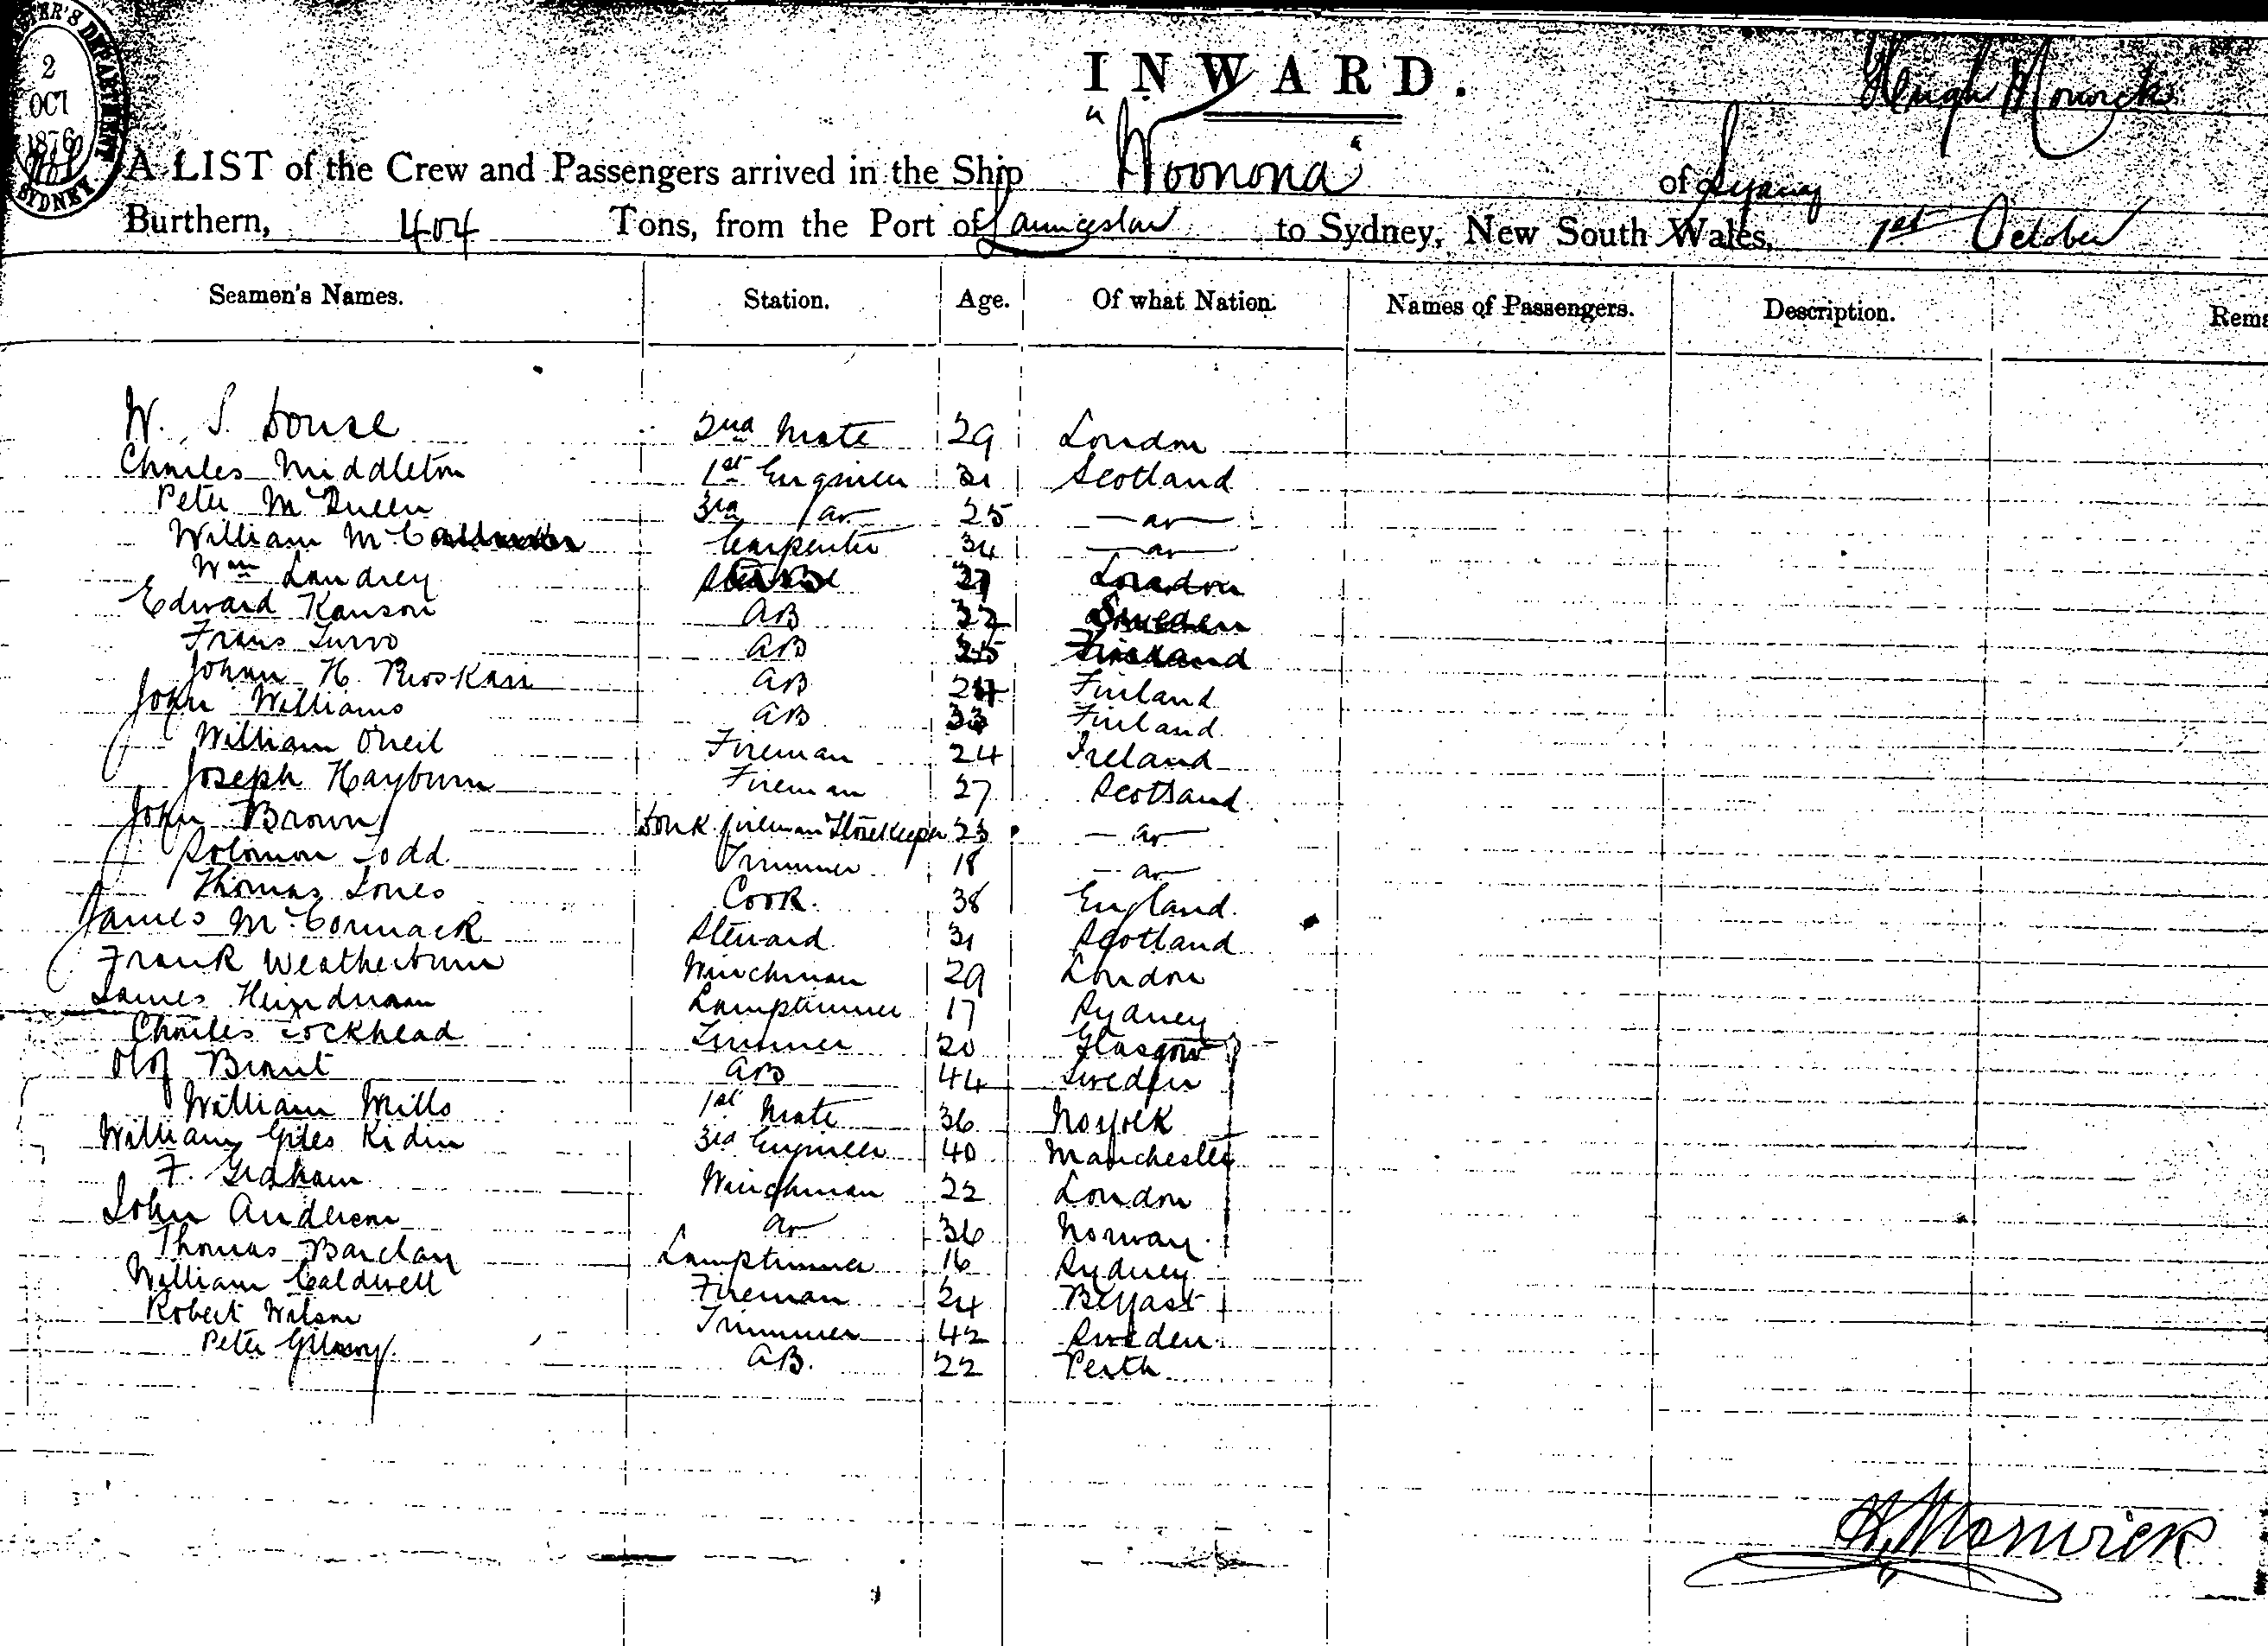 2
OCT
1876
SYDNEY
INWARD.
Hugh Monwick
A LIST of the Crew and Passengers arrived in the Ship "Woonona" of Sydney
Burthern, 404 Tons, from the Port of Launceston to Sydney, New South Wales, 1st October
Seamen's Names. Station. Age. Of what Nation. Names of Passengers. Description.
W. S. Douse 2nd Mate 29 London
Charles Middleton 1st Engineer 31 Scotland
Peter McQueen 3rd do 25 do
William Carpenter 34 do
Wm Landrey London
Edward Kanson AB Sweden
Frans AB 25
Johan H. AB 24 Finland
John Williams AB 33 Finland
William ONeil Fireman 24 Ireland
Joseph Hayburn Fireman 27 Scotland
John Brown Donk fireman Storekeeper 23 do
Solomon Todd Trimmer 18 do
Thomas Jones Cook. 38 England.
James McCormack Steward 31 Scotland
Frank Weatherburn Winchman 29 London
James Hindman Lamptrimmer 17 Sydney
Charles Lockhead Trimmer 20 Glasgow
Olof Brant AB 44 Sweden
William Mills 1st Mate 36 Norfolk
William Giles 3rd Engineer 40 Manchester
F. Graham Winchman 22 London
John Anderson do 36 Norway.
Thomas Barclay Lamptrimmer 16 Sydney
William Caldwell Fireman 24 Belfast
Robert Wilson Trimmer 42 Sweden.
Peter AB. 22 Perth